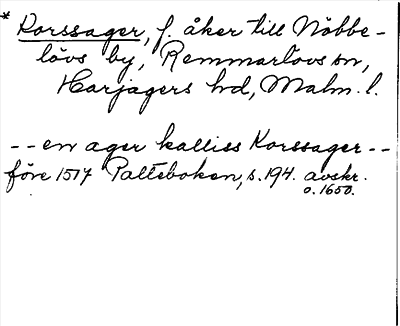 * Korssager, f. åker till Nöbbe-
lövs by, Remmarlövs sn,
Harjagers hd, Malm. l.
-- en ager kalliss Korssager --
före 1517 Palteboken, s. 194. avskr.
o. 1650.